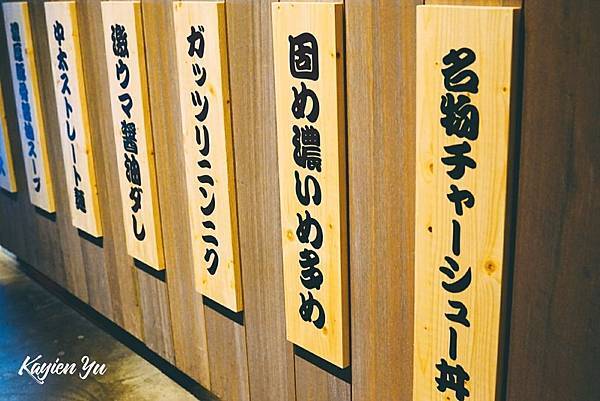 名物チャーシュー丼
固め濃いめ多め
ガッツリニンニク
激ウマ醤油ダレ
中太ストレート麺
濃厚豚骨醤油スープ
Kayien Yu